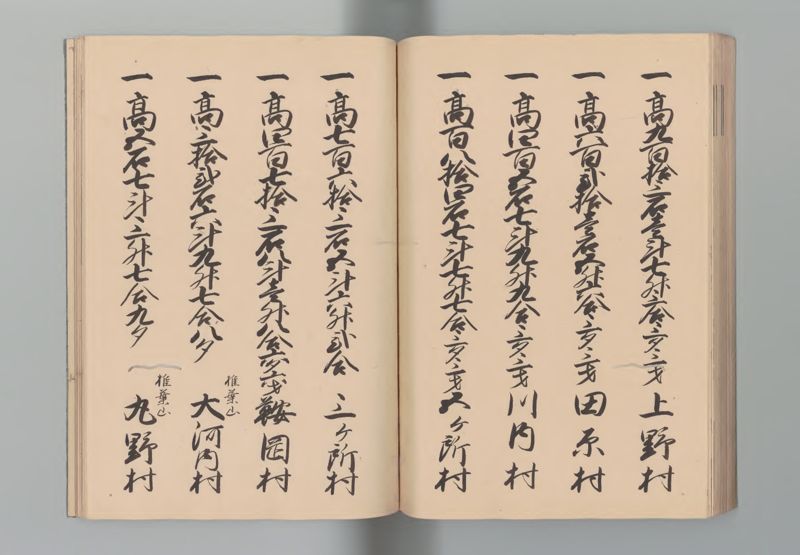 一高九百拾三石壱斗七升三合
上野村
一高六百弐拾壱石五升六合
田原村
一高四百五石七斗九升九合
川内村
一高百八拾四石七斗七升七合
五ケ所村
一高七百六拾三石五斗六升弐合
三ケ所村
一高四百七拾三石八斗壱升八合
鞍岡村
一高三拾弐石六斗九升七合八夕
椎葉山
大河内村
一高五石七斗三升七合九夕
椎葉山
村